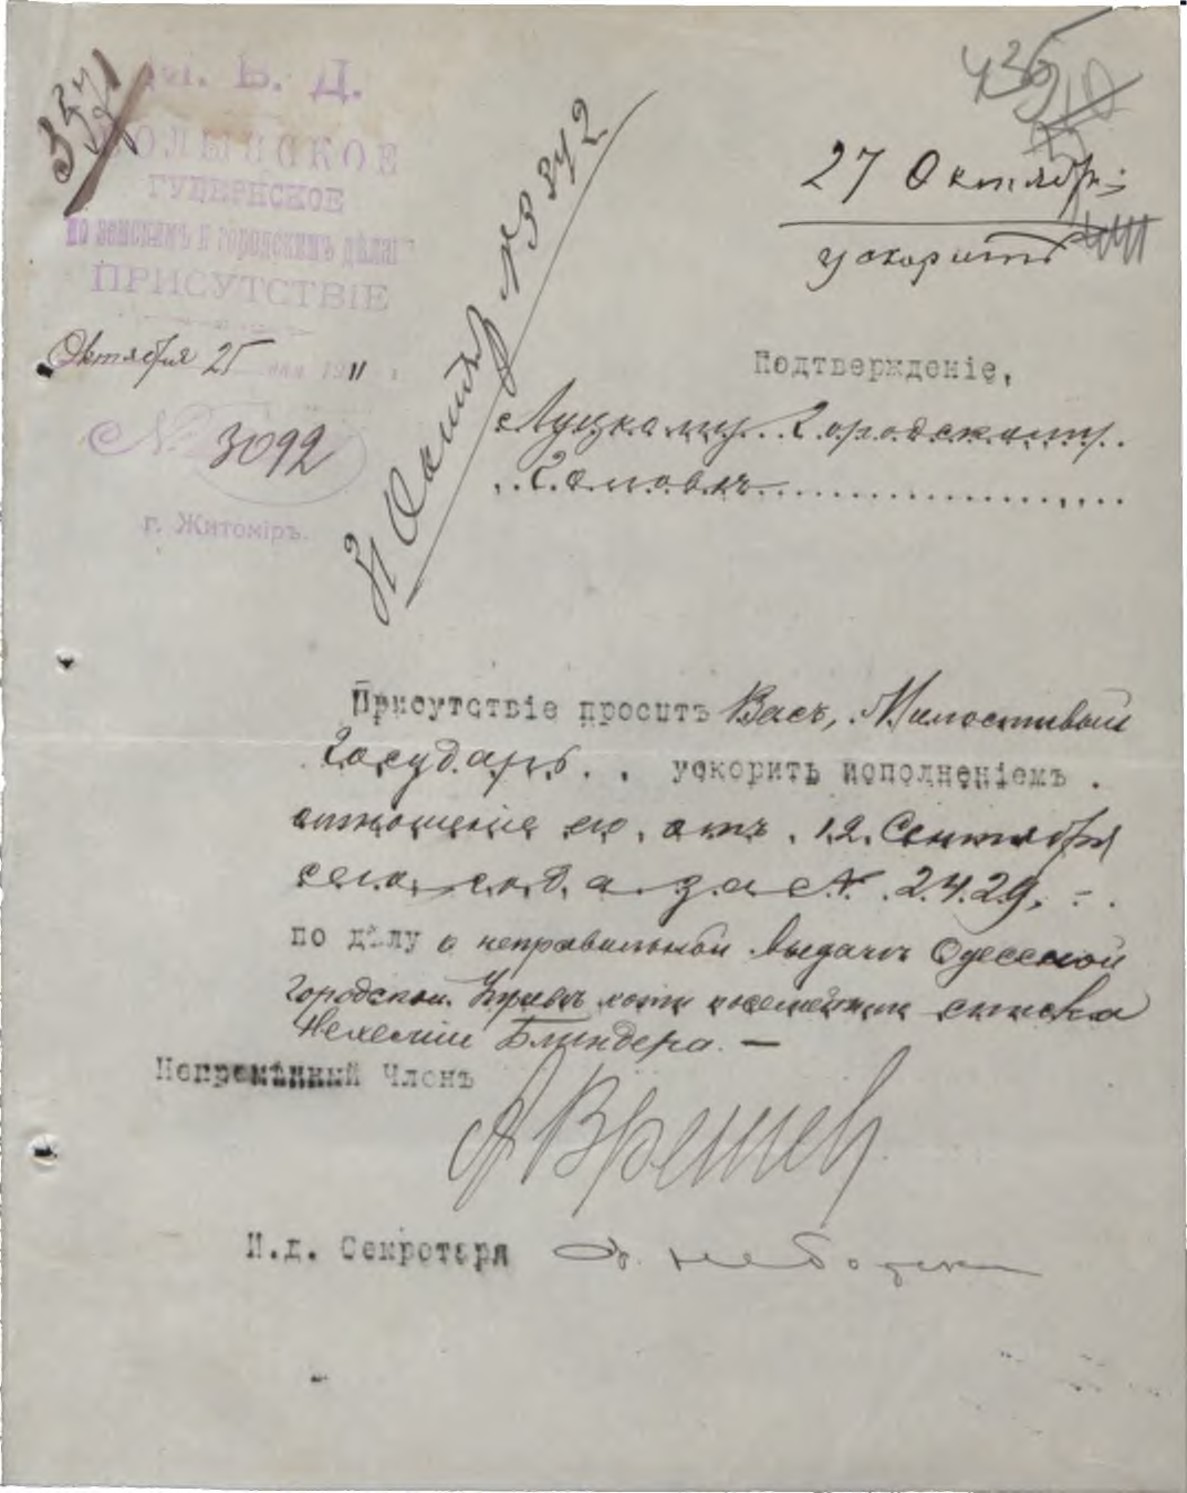 М. В. Д.
ВОЛЫНСКОЕ
ГУБЕРНСКОЕ
по земскимъ и городскимъ дѣламъ
ПРИСУТСТВІЕ
Октября 25 дня 1911 г.
№ 3092
г. Житоміръ.
435
27 Октября
ускорить
31 Октября № 3342
Подтвержденіе,
Луцкому Городскому
Головѣ
Присутствіе проситъ Васъ, Милостивый
Государь . . ускорить исполненіемъ
отношенія его отъ 12 Сентября
сего года за № 2429,
по дѣлу о неправильной выдачѣ Одесской
Городской Управѣ копіи посемейнаго списка
Нехеміи Блиндера. —
Непремѣнный Членъ
И.д. Секретаря